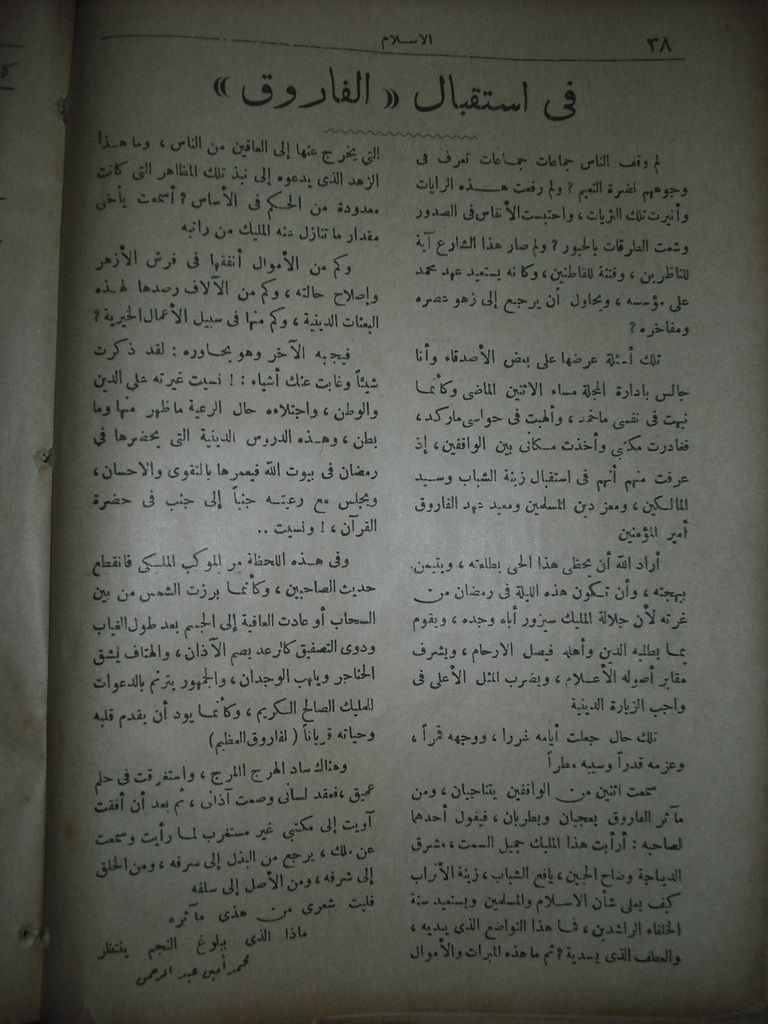 ٣٨
الاسلام
فى استقبال « الفاروق »
لم وقف الناس جماعات جماعات تعرف فى
وجوههم نضرة النعيم ؟ ولم رفعت هذه الرايات
وأنيرت تلك الثريات ، واحتبست الأنفاس فى الصدور
وشعت الطرقات بالحبور ؟ ولم صار هذا الشارع آية
للناظرين ، وفتنة للقاطنين ، وكأنه يستعيد عهد محمد
على مؤسسه ، ويحاول أن يرجع إلى زهو عصره
ومفاخره ؟
تلك أسئلة عرضها على بعض الأصدقاء وأنا
جالس بادارة المجلة مساء الاثنين الماضى وكأنما
نبهت فى نفسى ما خمد ، وألهبت فى حواسى ما ركد ،
فغادرت مكتبى وأخذت مكانى بين الواقفين ، إذ
عرفت منهم أنهم فى استقبال زينة الشباب وسيد
المالكين ، ومعز دين المسلمين ومعيد عهد الفاروق
أمير المؤمنين
أراد الله أن يحظى هذا الحى بطلعته ، ويتيمن
ببهجته ، وأن تكون هذه الليلة فى رمضان من
غرته لأن جلالة المليك سيزور أباه وجده ، ويقوم
بما يطلبه الدين وأهله فيصل الارحام ، ويشرف
مقابر أصوله الأعلام ، ويضرب المثل الأعلى فى
واجب الزيارة الدينية
تلك حال جعلت أيامه غررا ، ووجهه قمراً ،
وعزمه قدراً وسيبه مطراً
سمعت اثنين من الواقفين يتناجيان ، ومن
مآثر الفاروق يعجبان ويطربان ، فيقول أحدهما
لصاحبه : أرأيت هذا المليك جميل السمت ، مشرق
الديباجة وضاح الجبين ، يافع الشباب ، زينة الأتراب
كيف يعلى شأن الاسلام والمسلمين ويستعيد سنة
الخلفاء الراشدين ، فما هذا التواضع الذى يبديه ،
والعطف الذى يسديه ؟ ثم ما هذه المبرات والأموال
التي يخرج عنها إلى العافين من الناس ، وما هذا
الزهد الذى يدعوه إلى نبذ تلك المظاهر التى كانت
معدودة من الحكم فى الأساس ؟ أسمعت يأخى
مقدار ما تنازل عنه المليك من راتبه
وكم من الأموال أنفقها فى فرش الأزهر
وإصلاح حالته ، وكم من الآلاف رصدها لهذه
البعثات الدينية ، وكم منها فى سبيل الأعمال الخيرية ؟
فيجبه الآخر وهو يحاوره : لقد ذكرت
شيئاً وغابت عنك أشياء : ! نسيت غيرته على الدين
والوطن ، واجتلاءه حال الرعية ما ظهر منها وما
بطن ، وهذه الدروس الدينية التى يحضرها فى
رمضان فى بيوت الله فيعمرها بالتقوى والاحسان ،
ويجلس مع رعيته جنباً إلى جنب فى حضرة
القرآن ، ! ونسيت ..
وفى هذه اللحظة مر الموكب الملكى فانقطع
حديث الصاحبين ، وكأنما برزت الشمس من بين
السحاب أو عادت العافية إلى الجسم بعد طول الغياب
ودوى التصفيق كالرعد يصم الآذان ، والهتاف يشق
الحناجر ويلهب الوجدان ، والجمهور يترنم بالدعوات
للمليك الصالح الكريم ، وكأنما يود أن يقدم قلبه
وحياته قرباناً ( لفاروق العظيم )
وهناك ساد الهرج المرج ، واستغرقت فى حلم
عميق ، فعقد لسانى وصمت آذانى ، ثم بعد أن أفقت
آويت إلى مكتبى غير مستغرب لما رأيت وسمعت
عن ملك ، يرجع من البذل إلى سرفه ، ومن الخلق
إلى شرفه ، ومن الأصل إلى سلفه
فليت شعرى من هذى مآثره
ماذا الذى ببلوغ النجم ينتظر
محمد أمين عبد الرحمن